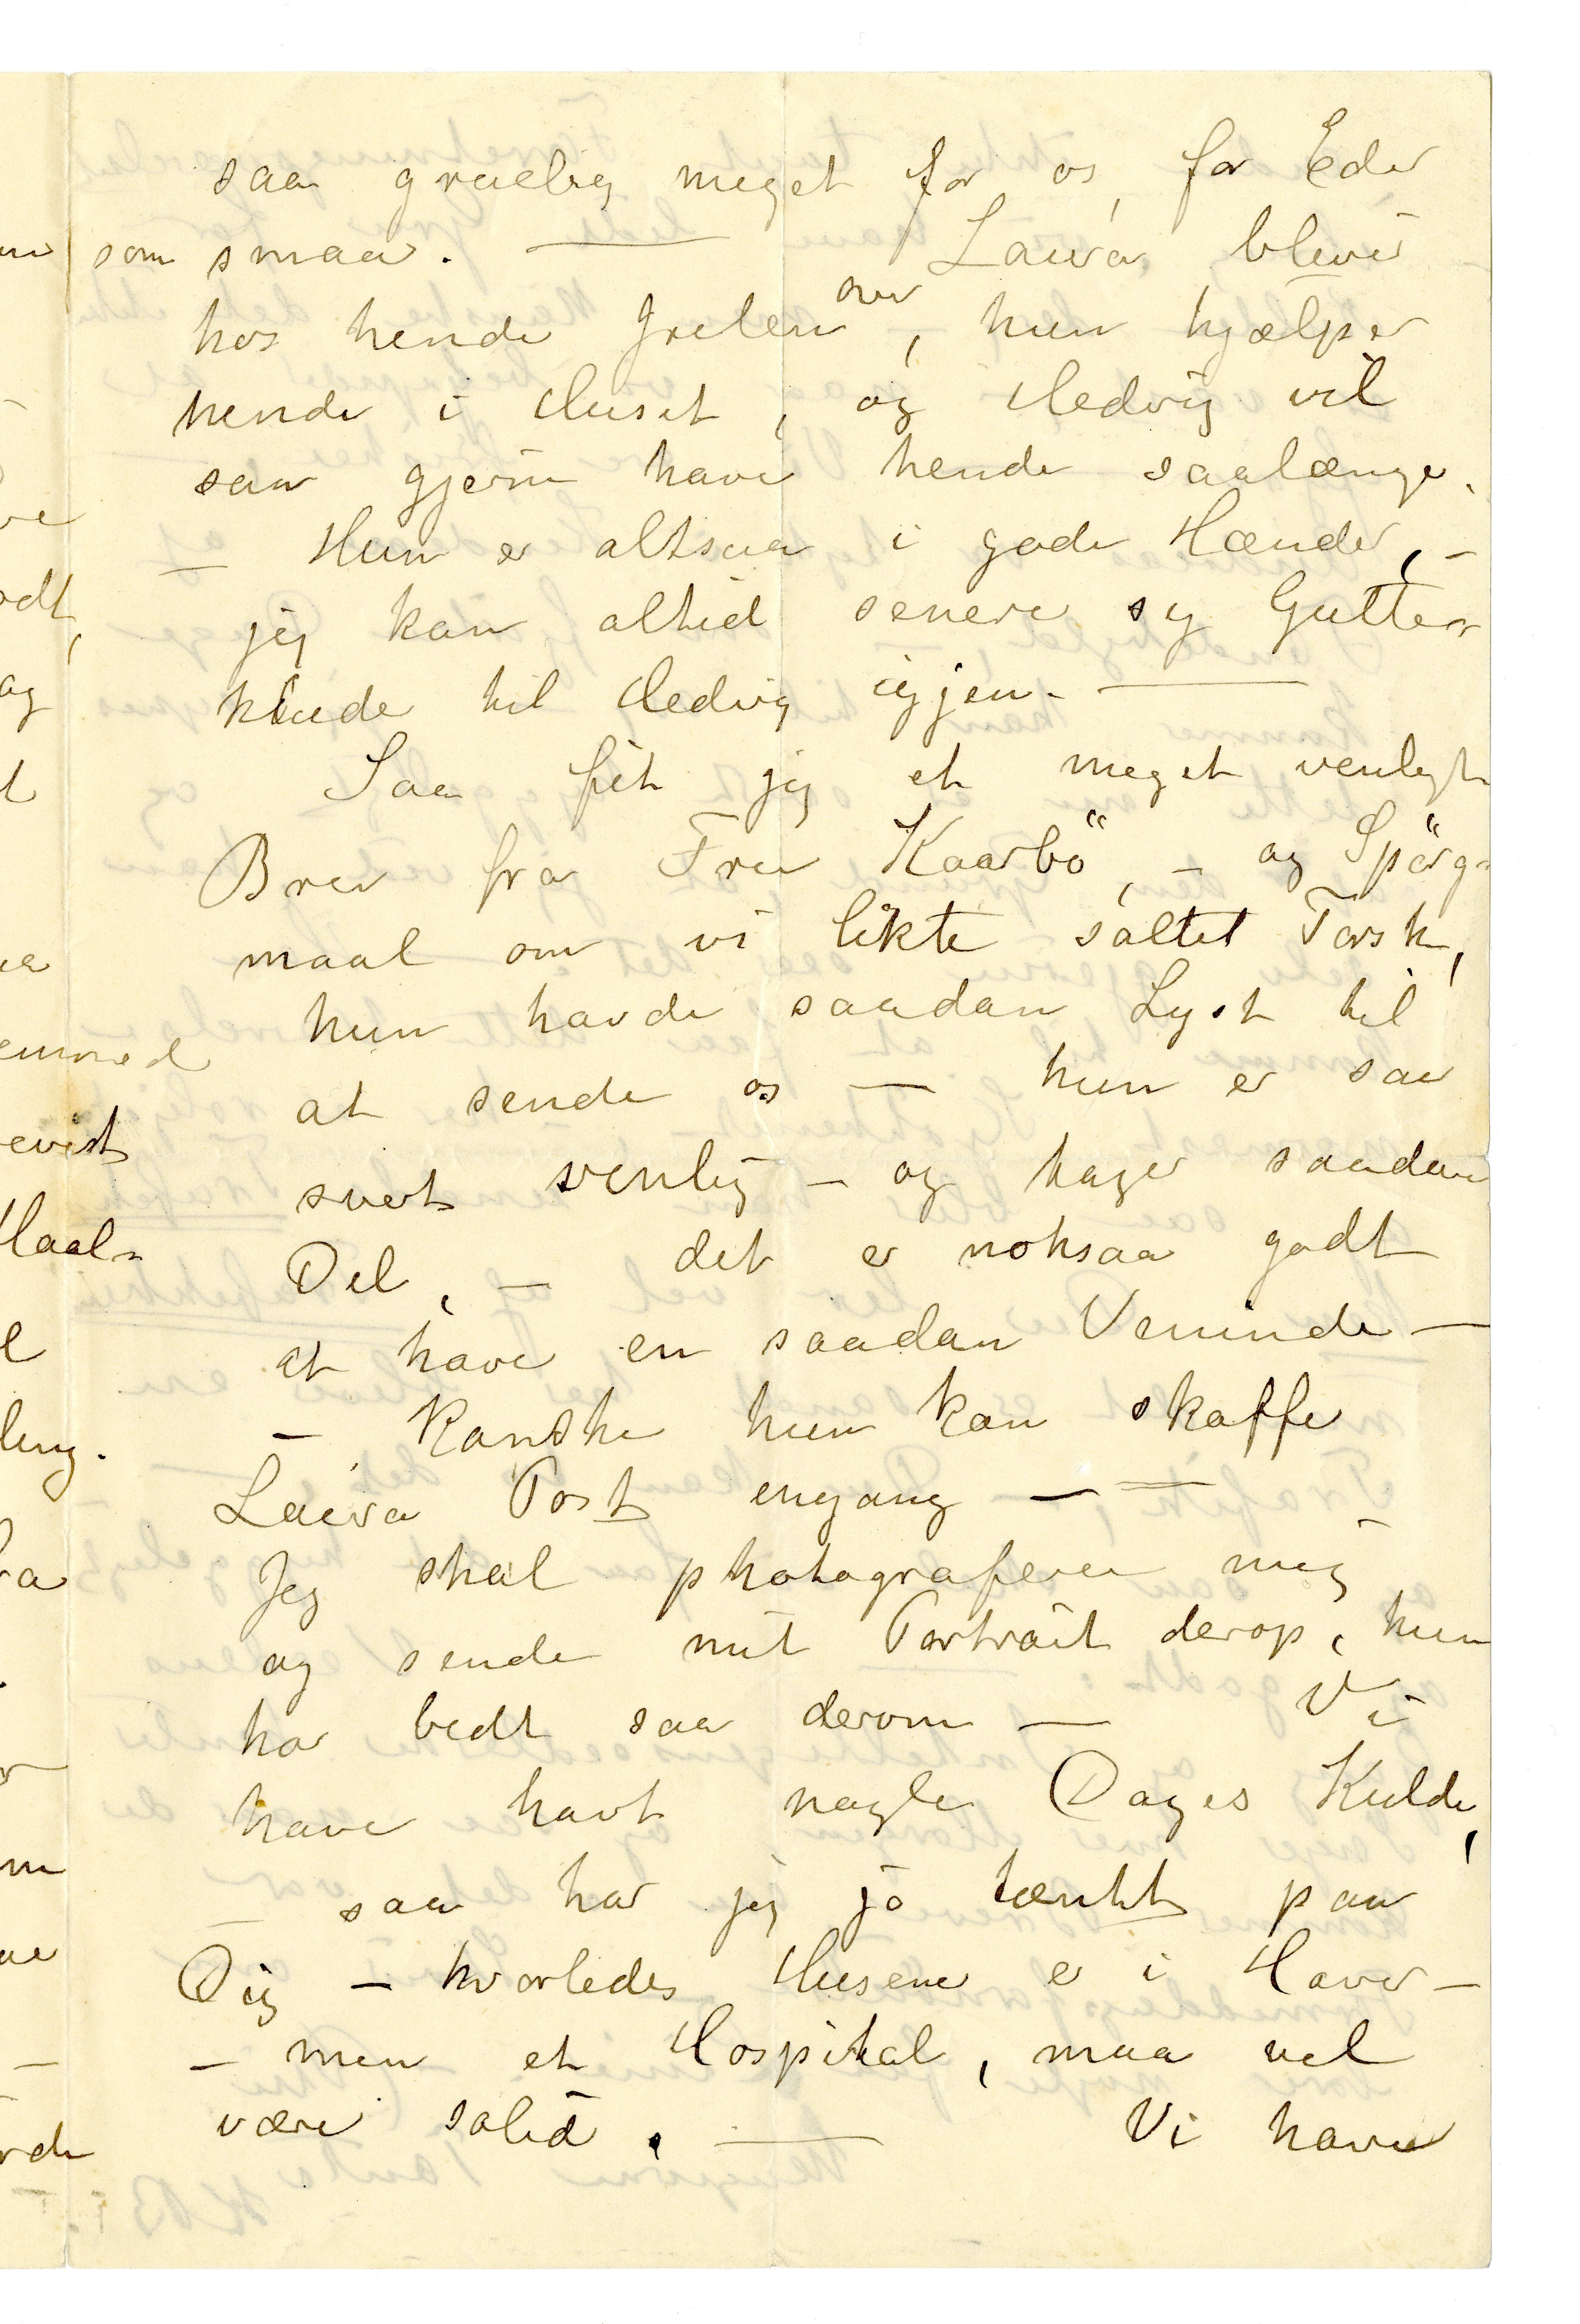 saa græelig meget for os, for Eder
som smaa. — Laura blever
hos hende Julen over, hun hjælper
hende i Huset, og Hedvig vil
saa gjerne have hende saalænge.
— Hun er altsaa i gode Hænder, –
jeg kan altid senere sy Gutte-
klæde til Hedvig igjen. —
Saa fik jeg et meget venligt
Brev fra Fru Kaarbö, – og Spörgs-
maal om vi likte saltet Torsk,
hun havde saadan Lyst til
at sende os — hun er saa
svert venlig – og tager saadan
Del, — det er noksaa godt
at have en saadan Veninde —
– Kanske hun kan skaffe
Laura Post engang — —
Jeg skal photograferer mig
og sende mit Portrait derop, hun
har bedt saa derom — Vi
have havt nogle Dages Kulde,
– saa har jeg jo tænkt paa
Dig – hvorledes Husene er i Haver –
– men et Hospital, maa vel
være solid. — Vi have